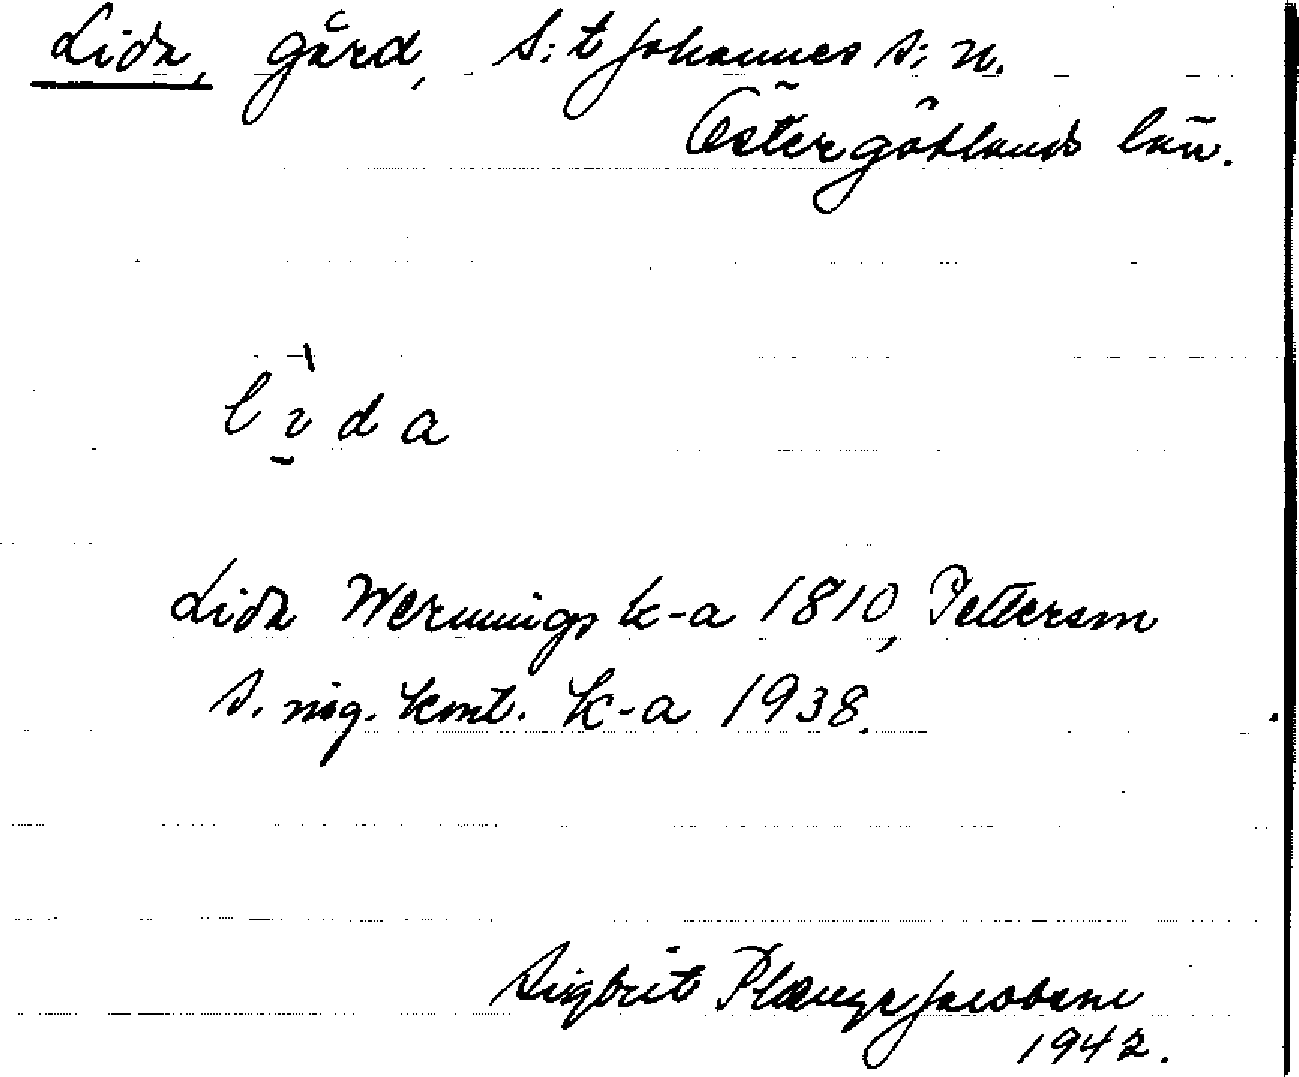 Lida, gård, S:t Johannes s:n.
Östergötlands län.
lida
Lida Wernings k-a 1810, Petterson
s. nig. kont. k-a 1938.
Sigbrit Plænge Jacobson
1942.